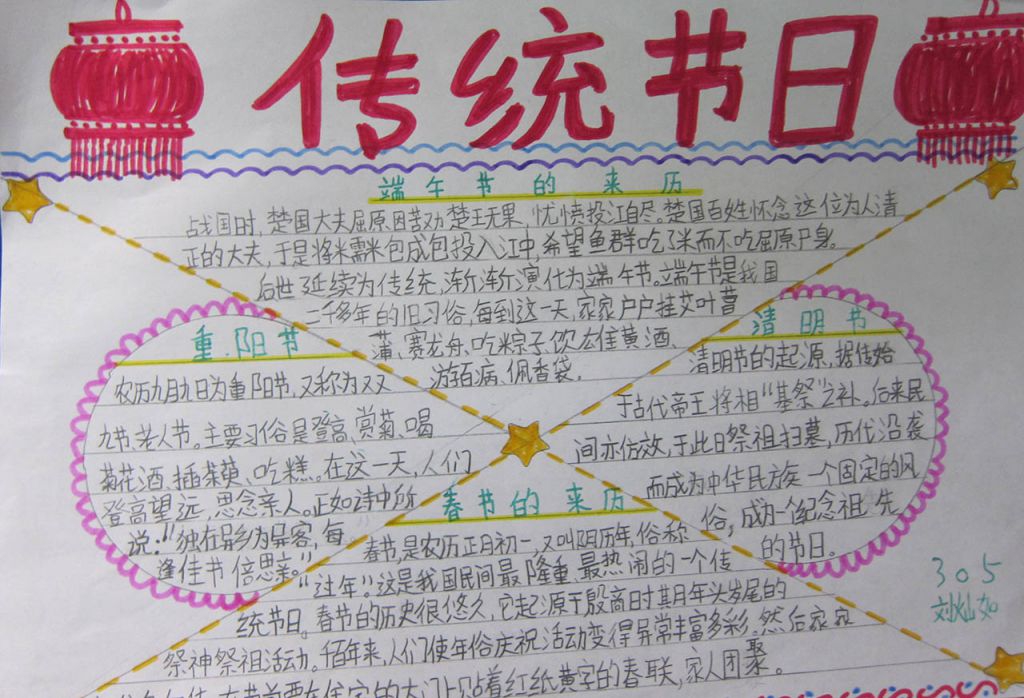 传统节日
端午节的来历
战国时,楚国大夫屈原因苦劝楚王无果,忧愤投江自尽。楚国百姓怀念这位为人清
正的大夫,于是将米需米包成包投入江中,希望鱼群吃了米而不吃屈原尸身。
后世延续为传统,渐渐演化为端午节。端午节是我国
二千多年的旧习俗,每到这一天,家家户户挂艾叶菖
蒲、赛龙舟、吃粽子、饮雄黄酒、
游百病、佩香袋。
重阳节
农历九月九日为重阳节,又称为双
九节、老人节。主要习俗是登高、赏菊、喝
菊花酒、插茱萸、吃糕。在这一天,人们
登高望远,思念亲人。正如诗中所
说:"独在异乡为异客,每
逢佳节倍思亲。"
清明节
清明节的起源,据传始
于古代帝王将相"墓祭"之礼。后来民
间亦仿效,于此日祭祖扫墓,历代沿袭
而成为中华民族一个固定的风
俗,成为一个纪念祖先
的节日。
春节的来历
春节,是农历正月初一,又叫阴历年,俗称
"过年"。这是我国民间最隆重、最热闹的一个传
统节日。春节的历史很悠久,它起源于殷商时期年头岁尾的
祭神祭祖活动。佰年来,人们使年俗庆祝活动变得异常丰富多彩。然后家家
春节前要在住宅的大门上贴着红纸黄字的春联,家人团聚。
305